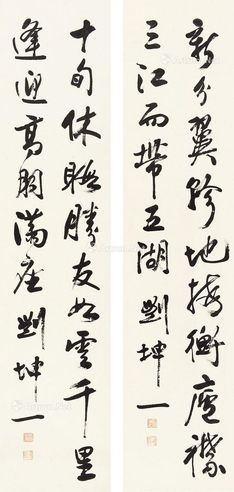 新分翼軫地接衡廬襟
三江而帶五湖 劉坤一
十旬休暇勝友如雲千里
逢迎高朋滿座 劉坤一